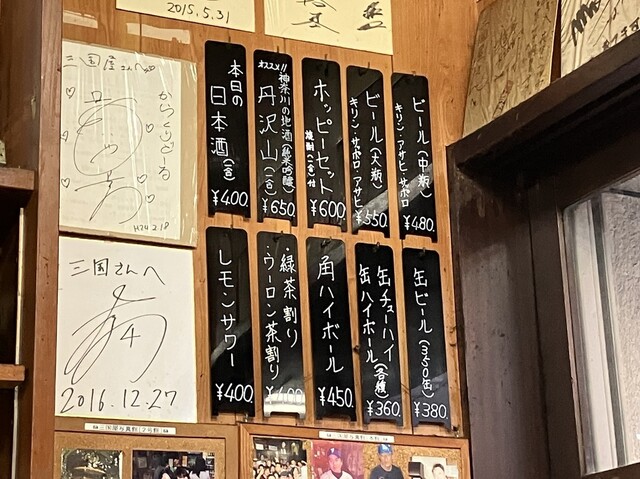 2015.5.31
三国屋さん江
からくりどーる
H24 2.18
三国さんへ
4
2016.12.27
ビール(中瓶)
キリン・アサヒ・サッポロ
¥480.
ビール(大瓶)
キリン・サッポロ・アサヒ
¥550.
ホッピーセット
焼酎(一合)付
¥600
オススメ!!
神奈川の地酒(純米吟醸)
丹沢山(一合)
¥650.
本日の
日本酒(一合)
¥400.
缶ビール(350缶)
¥380.
缶チューハイ
缶ハイボール(各種)
¥360.
角ハイボール
¥450.
・緑茶割り
・ウーロン茶割り
¥400
レモンサワー
¥400